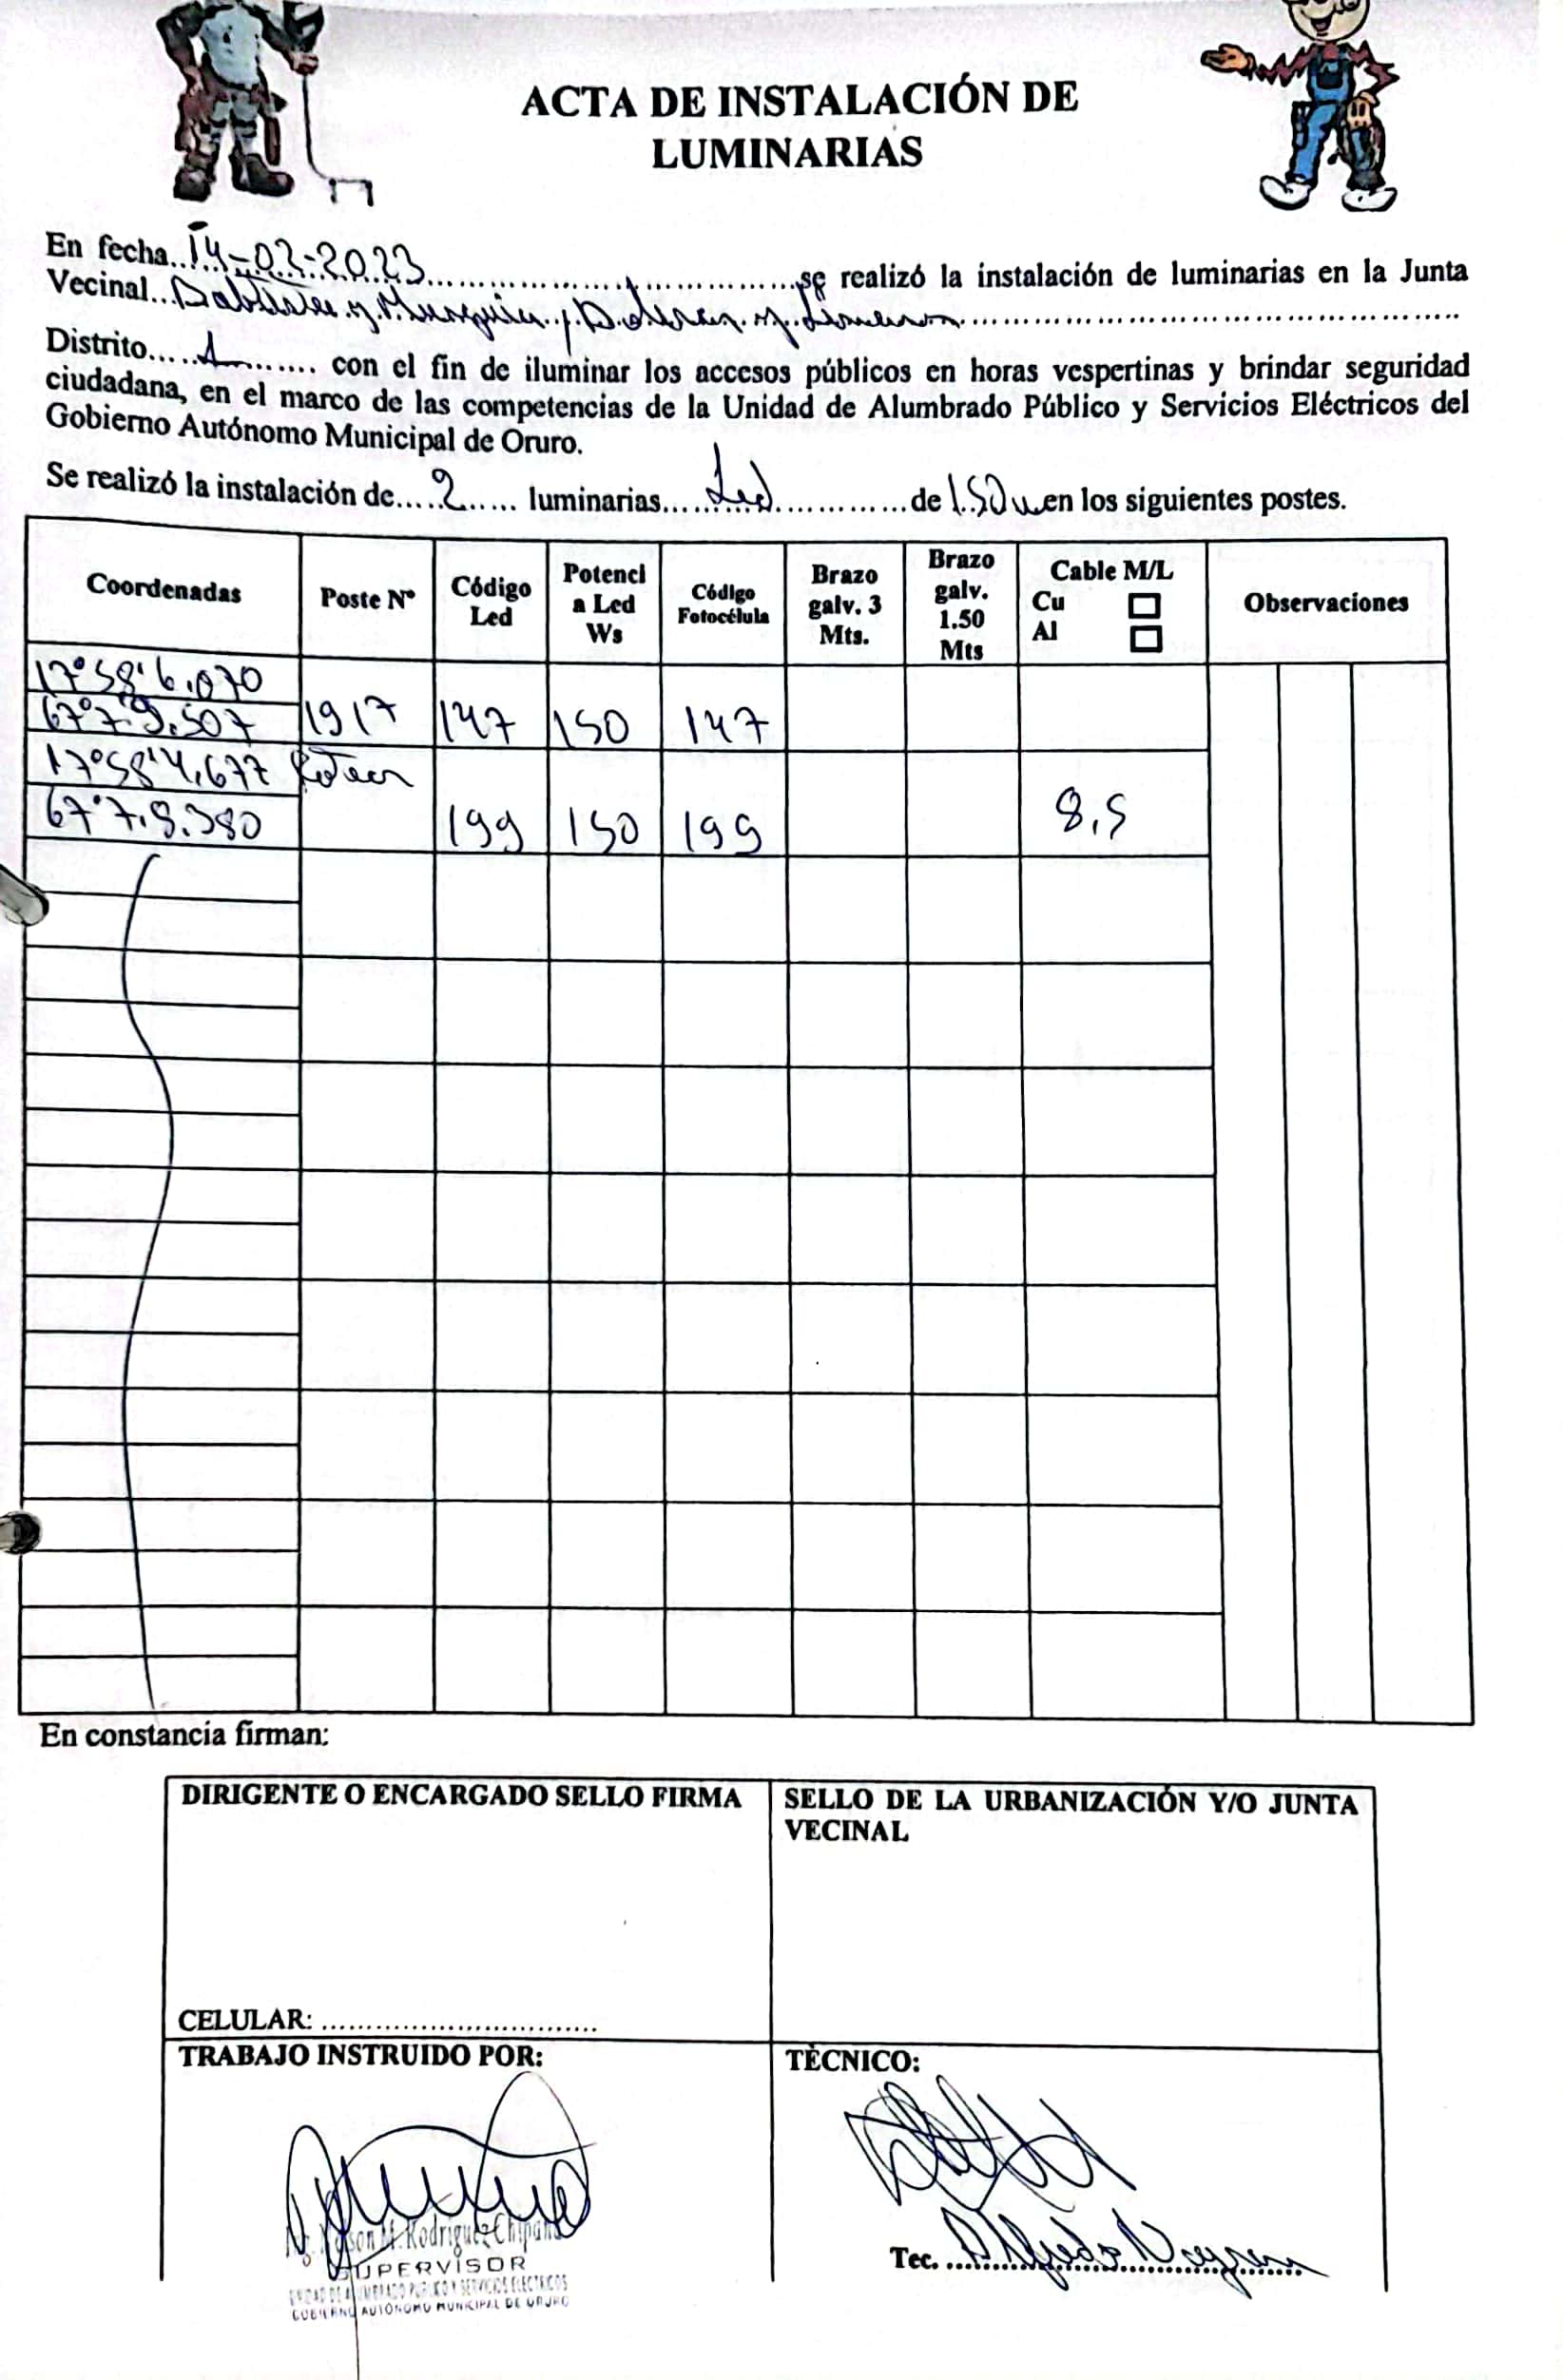 ACTA DE INSTALACIÓN DE
LUMINARIAS
En fecha..14-02-2023..........................se realizó la instalación de luminarias en la Junta
Vecinal...
Distrito.....1......... con el fin de iluminar los accesos públicos en horas vespertinas y brindar seguridad
ciudadana, en el marco de las competencias de la Unidad de Alumbrado Público y Servicios Eléctricos del
Gobierno Autónomo Municipal de Oruro.
Se realizó la instalación de.....2..... luminarias....Led............de 150w en los siguientes postes.
Coordenadas Poste N° Código Led Potencia Led Ws Código Fotocélula Brazo galv. 3 Mts. Brazo galv. 1.50 Mts Cable M/L Cu Al Observaciones
17°58'6.070
67°7'9.507 1917 147 150 147
17°58'4,677
67°7'.9.380 199 150 199 8,5
En constancia firman:
DIRIGENTE O ENCARGADO SELLO FIRMA
SELLO DE LA URBANIZACIÓN Y/O JUNTA
VECINAL
CELULAR: ................................
TRABAJO INSTRUIDO POR:
TÉCNICO:
Rodriguez Chipana
SUPERVISOR
UNIDAD DE ALUMBRADO PUBLICO Y SERVICIOS ELECTRICOS
GOBIERNO AUTÓNOMO MUNICIPAL DE ORURO
Tec. Alfredo